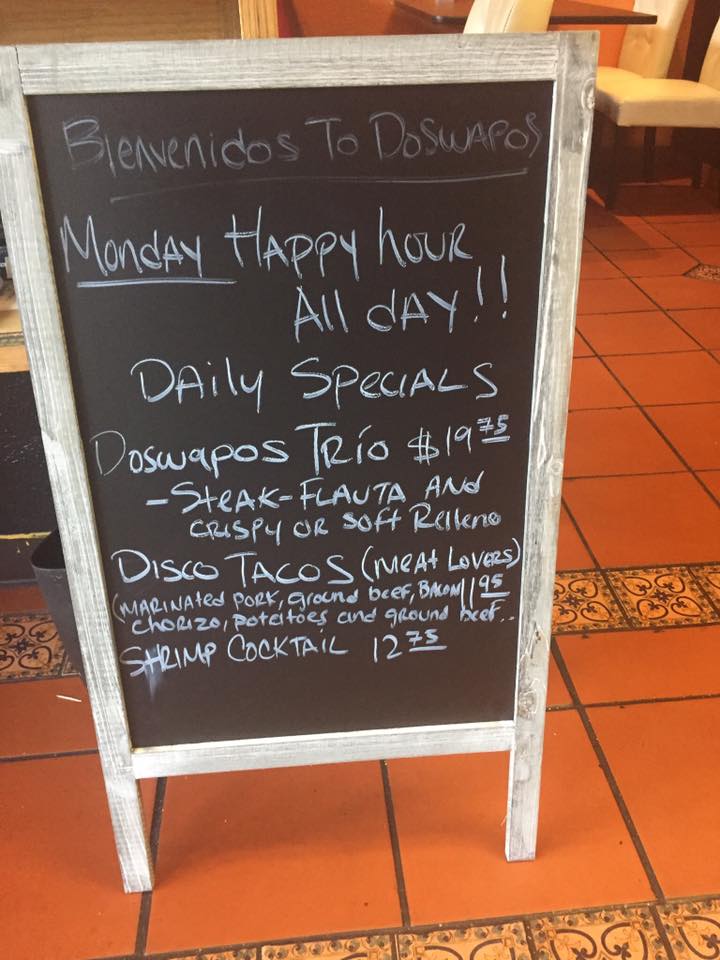 Bienvenidos To Doswapos
Monday Happy hour
All day!!
Daily Specials
Doswapos Trío $19.75
- Steak - Flauta and
crispy or soft Relleno
Disco Tacos (meat Lovers)
(marinated pork, ground beef, Bacon 11.95
chorizo, potatoes and ground beef..
Shrimp Cocktail 12.75